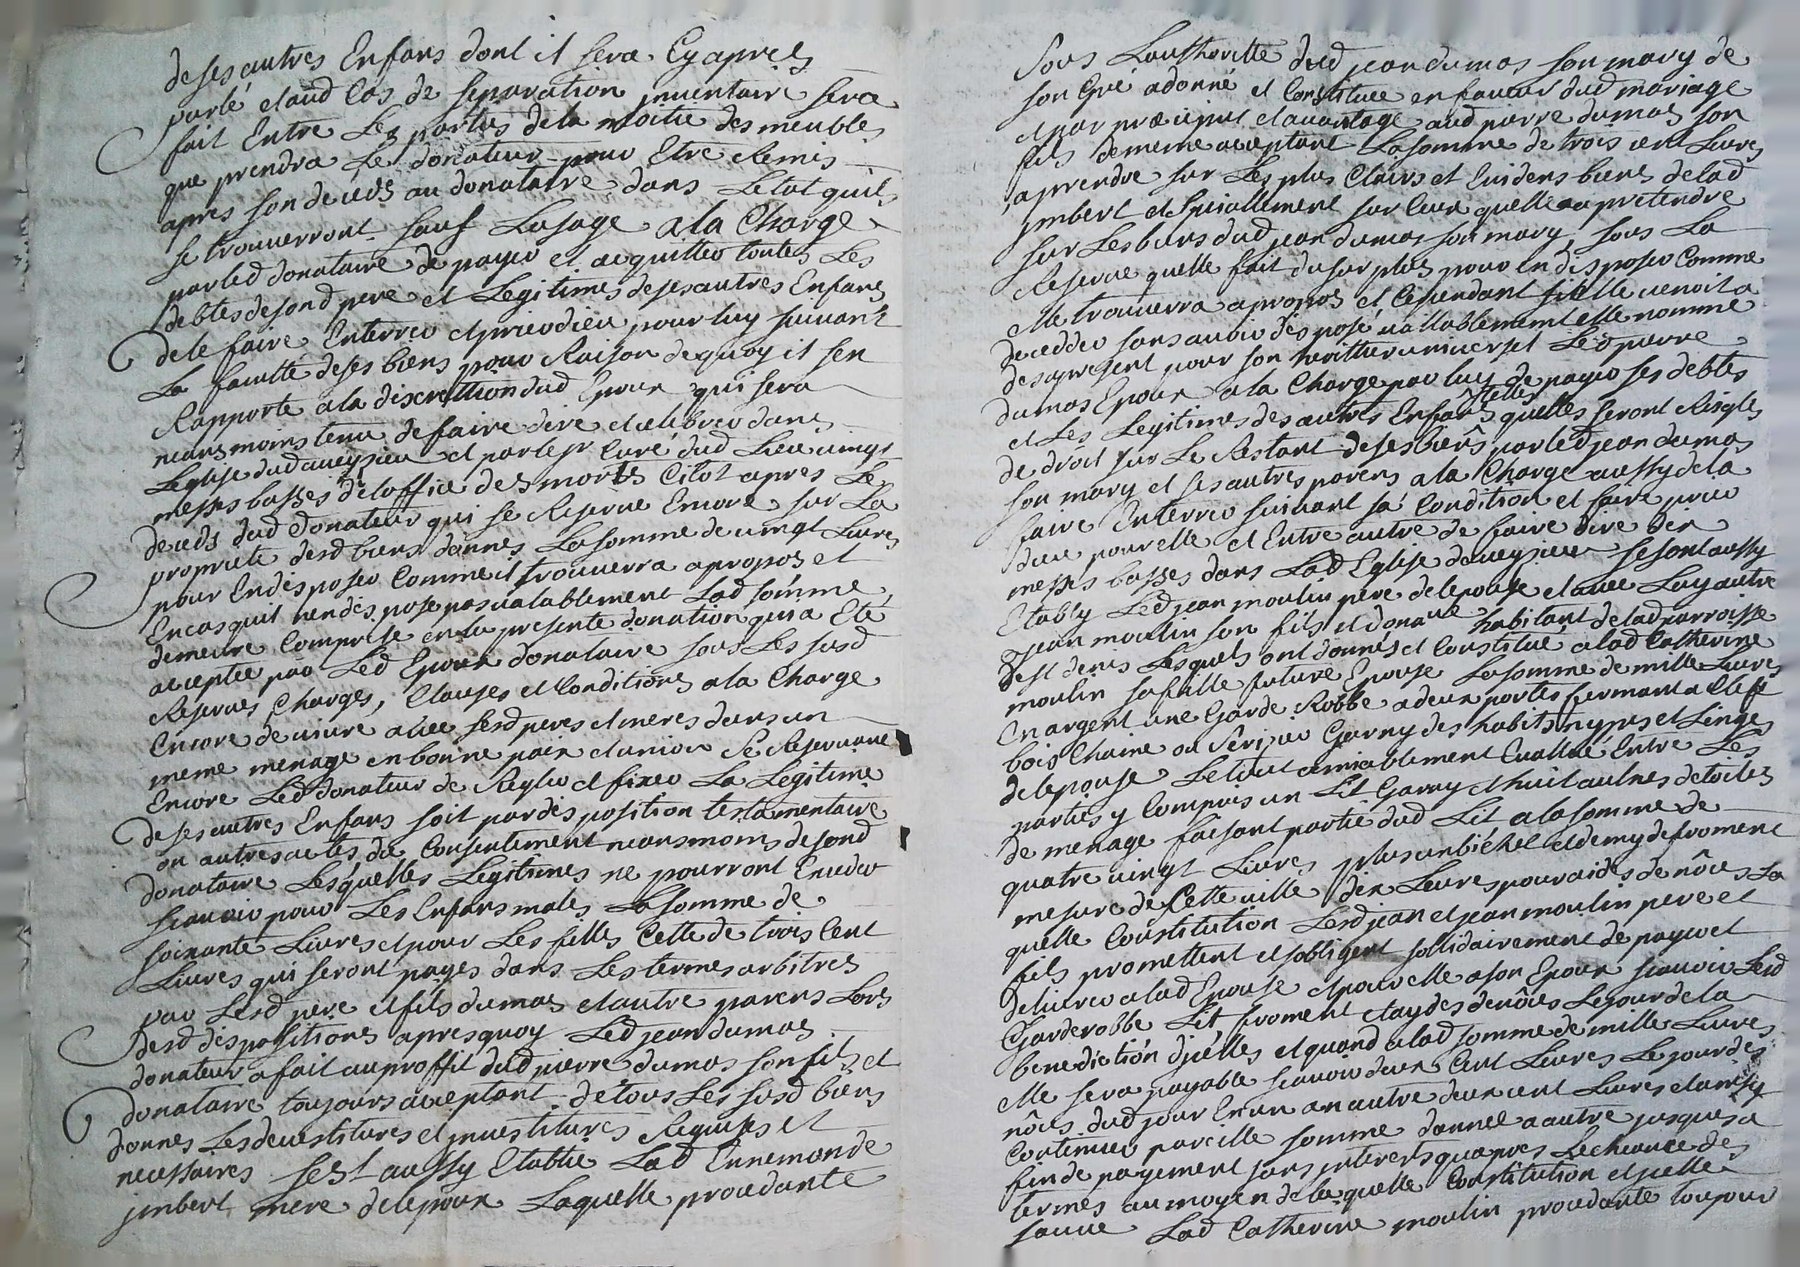 de ses autres Enfans dont il sera Cy apres
parlé et aud Cas de separation jnventaire sera
fait Entre Les parties de la moitié des meubles
que prendra Le donateur pour Etre Remis
apres son deceds au donataire dans Letat quils
se trouverront sauf Lusage a la Charge
par led donataire de payer et acquitter toutes Les
debtes de sond pere et Legitimes de ses autres Enfans
de le faire Enterrer et prier dieu pour luy suivant
La faculté de ses biens pour Raison de quoy il s'en
Rapporte a la discrettion dud Epoux qui sera
neansmoins tenu de faire dire et celebrer dans
Leglise dud aveysieu et par le sr Curé dud Lieu vingt
messes basses de loffice des morts Citot apres Le
deceds dud donateur qui se Reserve Encore sur La
proprieté desd biens donnés La somme de vingt Livres
pour En disposer Comme il trouverra a propos et
En cas quil n'en dispose pas valablement Lad somme
demeure Comprise en la presente donation qui a Eté
acceptée par Led Epoux donataire sous Les susd
Reserves, Charges, Clauses et Conditions a la Charge
Encore de vivre avec sesd peres et meres dans un
meme menage en bonne paix et union Se Reservant
Encore Led donateur de Regler et fixer La Legitime
de ses autres Enfans soit par disposition testamentaire
ou autres actes du Consentement neansmoins de sond
donataire Lesquelles Legitimes ne pourront Exceder
scavoir pour Les Enfans males La somme de
soixante Livres et pour Les filles Cette de trois Cent
Livres qui seront payés dans Les termes arbitrés
par Lesd pere et fils dumas et autre parens Lors
desd dispositions apres quoy Led jean dumas
donateur a fait au proffit dud pierre dumas son fils et
donataire toujours acceptant de tous Les susd biens
donnes Les devestitures et jnvestitures Requises et
necessaires sest aussy Etablie Lad Ennemonde
jmbert mere de lepoux Laquelle procedante
sous Lauthoritte dud jean dumas son mary de
son gré a donné et Constitué en faveur dud mariage
et par præciput et avantage aud pierre dumas son
fils de meme acceptant La somme de trois cent Livres
a prendre sur Les plus Clairs et Evidens biens de lad
jmbert et spciallement sur Ceux quelle a a pretendre
sur Les biens dud jean dumas son mary, sous La
Reserve quelle fait du surplus pour en disposer Comme
Elle trouverra a propos et Cependant si Elle venoit a
deceddes sans avoir disposé vallablement elle nomme
des a present pour son heritier universel Led pierre
dumas Epoux a la Charge par luy de payer ses debtes
et Les Legitimes des autres Enfans telles quelles seront Reiglés
de droit sur Le Restant de ses biens par led jean dumas
son mary et ses autres parens a la Charge aussy de la
faire Enterrer suivant sa Condition et faire prier
dieu pour elle et Entre autre de faire dire dix
messes basses dans Lad Eglise daveysieu se sont aussy
Etably Led jean moulin pere de lepouse et avec Luy autre
jean moulin son fils et donatre habitant de lad parroisse
de st denis Lesquels ont donnés et Constitué a lad Catherine
moulin sa fille future Epouse La somme de mille Livres
En argent une Garde Robbe a deux portes fermant a Cleff
bois Chaine ou Serizier Garny des habits nypes et Linges
de lepouse Le tout amiablement Evallué Entre Les
parties y Compris un Lit Garny et huit aulnes de toiles
de menage faisant partie dud Lit a la somme de
quatre vingt Livres plus un bichet et demy de froment
mesure de Cette ville dix Livres pour aides de nôces La
quelle Constitution Lesd jean et jean moulin pere et
fils promettent et sobligent sollidairement de payer et
delivrer a lad Epouse et pour elle a son Epoux scavoir Lesd
Garderobbe Lit, froment et aydes de nôces Le jour de la
benediction djcelles et quand a lad somme de mille Livres
Elle sera payable scavoir deux Cent Livres Le jour des
nôces dud jour En un an autre deux cent Livres et ainsy
Continuer pareille somme dannée a autre jusques a
fin de payement sans jnterets quapres Lecheance des
termes au moyen de laquelle Constitution et jcelle
sauve Lad Catherine moulin procedante toujour